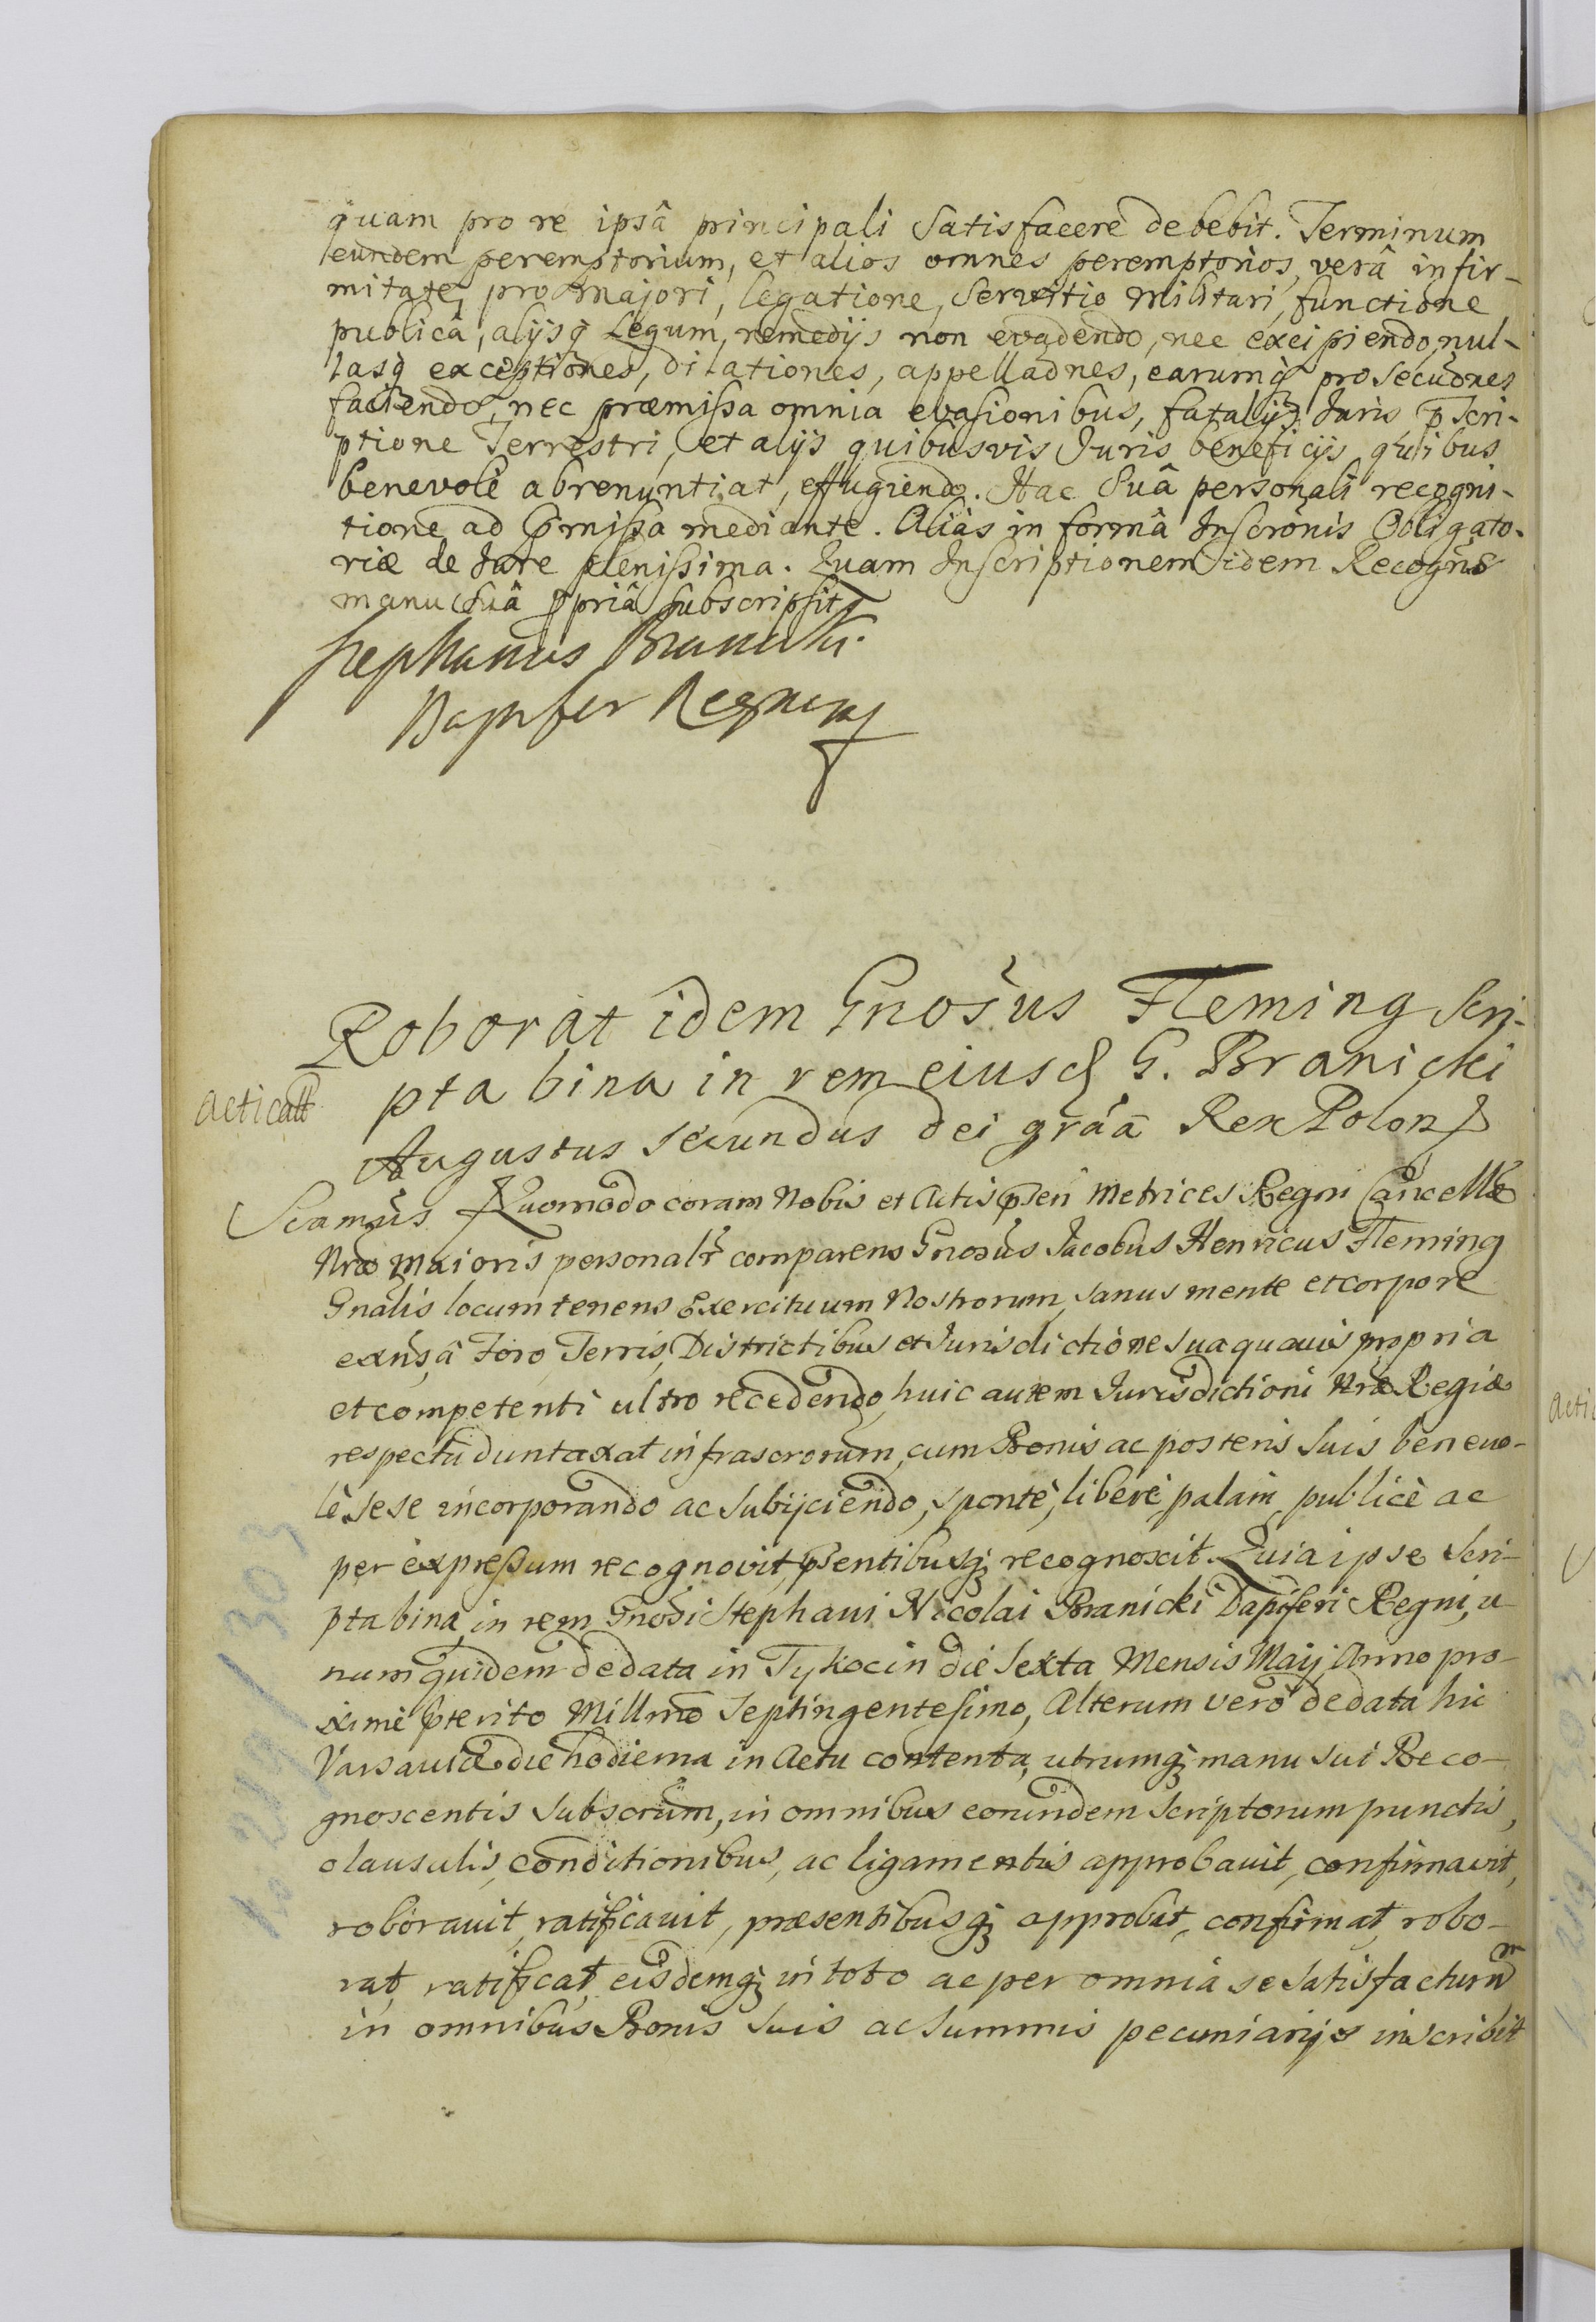 quam pro re ipsâ principali Satisfacere debebit. Terminum
eundem peremptorium, et alios omnes peremptorios, verâ infir-
mitate, pro majori, legatione, Servitio Militari, functione
publicâ, alijsq̢ Legum, remedijs non evadendo, nec excipiendo, nul-
lasq̢ exceptiones, dilationes, appellaõnes, earumq̢ prosecuõnes
faciendo, nec præmissa omnia evasionibus, fatalijs Juris p̄scri-
ptione Terrestri, et alijs quibusvis Juris beneficijs, quibus
benevole abrenuntiat, effugiendo. Hac Suâ personali recogni-
tione ad p̄missa mediante. Aliàs in formâ Inscrõnis Obligato-
riæ de Jure plenissima. Quam Inscriptionem idem Recogñs
manu Suâ ppriâ Subscripsit
Stephanus Branicki
Dapifer Regni mp
Roborat idem Gnosus Fleming Scri-
pta bina in rem eiusd G. Branicki
Acticatt
Augustus Secundus Dei grãa Rex Polon
Quomodo coram Nobis et Actis p̄sen Metrices Regni Cancellæ
Nræ Maioris personalr comparens Gnosus Jacobus Henricus Fleming
Gnalis locum tenens Exercituum Nostrorum, sanus mente et corpore
exñs, â Foro Terris, Districtibus et Jurisdictione sua quavis propria
et competenti ultro recedendo, huic autem Jurisdictioni Nræ Regiæ
respectu duntaxat infrascrorum, cum Bonis ac posteris Suis benevo-
lè sese incorporando ac Subijciendo, sponte, liberè palam, publicè ac
per expressum recognovit, p̄sentibusq̢ recognoscit. Quia ipse Scri-
pta bina in rem Gnosi Stephani Nicolai Branicki Dapiferi Regni, u-
num quidem de data in Tykocin die Sexta Mensis Maij Anno pro-
ximè p̄terito Millmo Septingentesimo, Alterum verò de data hic
Varsaviæ die hodierna in Actu contenta, utrumq̢ manu sui Reco-
gnoscentis Subscrum, in omnibus eorundem Scriptorum punctis,
clausulis, conditionibus, ac ligamentis approbavit, confirmavit,
roboravit, ratificavit, præsentibusq̢ approbat, confirmat, robo-
rat, ratificat, eisdemq̢ in toto ac per omnia se satisfacturum
in omnibus Bonis Suis ac Summis pecuniarijs inscribit